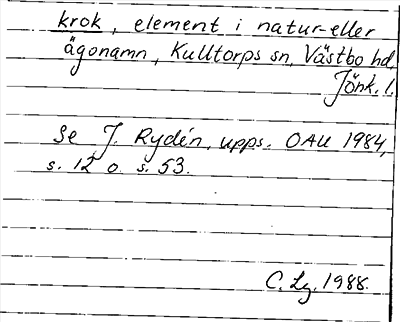 krok, element i natur- eller
ägonamn, Kulltorps sn, Västbo hd,
Jönk. l.
Se J. Rydén, upps. OAU 1984,
s. 12 o. s. 53.
C. Lg. 1988.